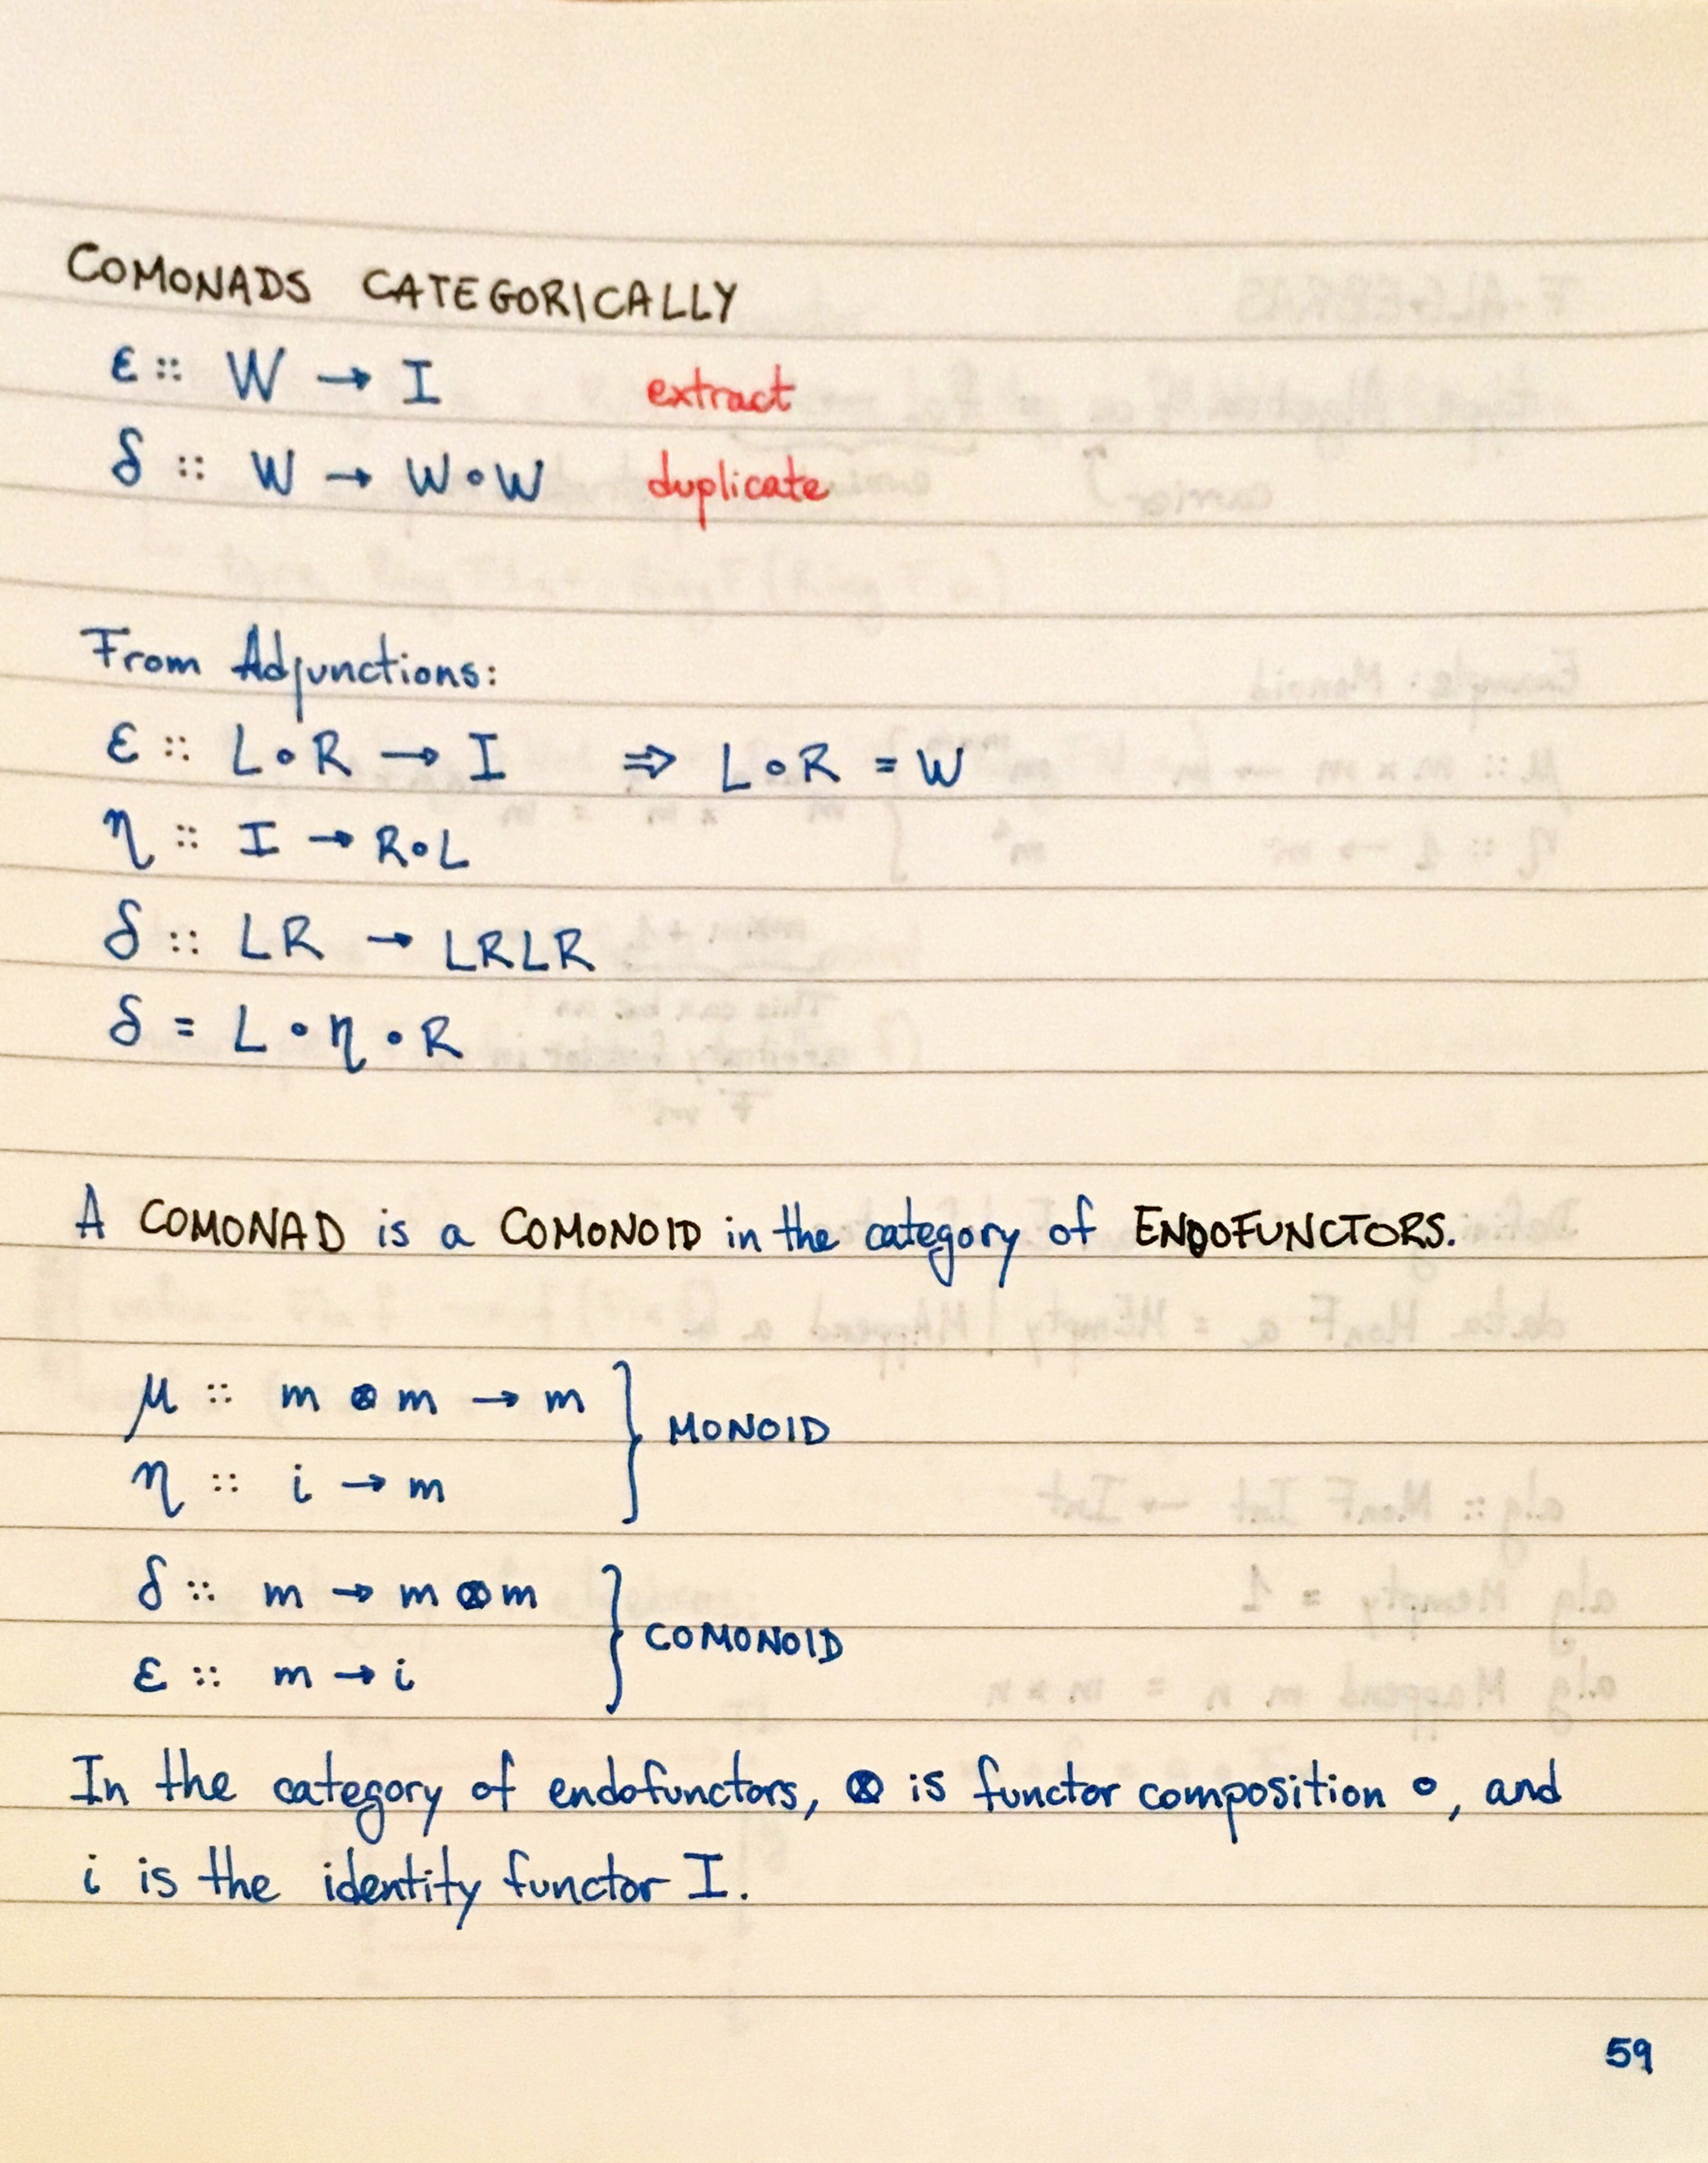 COMONADS CATEGORICALLY
ε :: W → I extract
δ :: W → W∘W duplicate
From Adjunctions:
ε :: L∘R → I ⇒ L∘R = W
η :: I → R∘L
δ :: LR → LRLR
δ = L∘η∘R
A COMONAD is a COMONOID in the category of ENDOFUNCTORS.
μ :: m ⊗ m → m
η :: i → m
} MONOID
δ :: m → m ⊗ m
ε :: m → i
} COMONOID
In the category of endofunctors, ⊗ is functor composition ∘, and
i is the identity functor I.
59